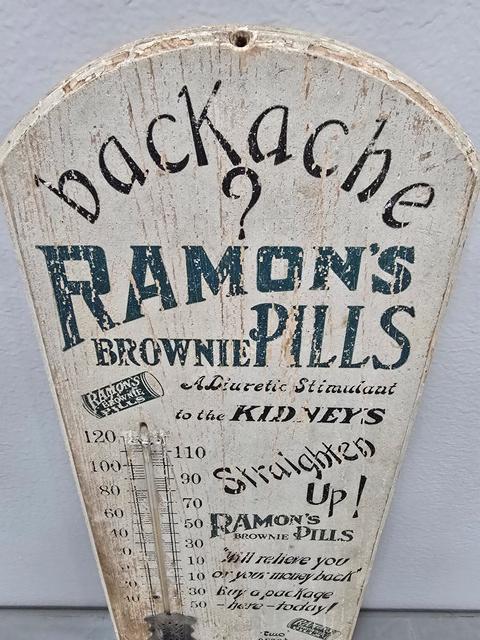 backache
?
RAMON'S
BROWNIE PILLS
RAMON'S
BROWNIE
PILLS
A Diuretic Stimulant
to the KIDNEYS
Straighten
Up!
RAMON'S
BROWNIE PILLS
"Will relieve you
or your money back"
Buy a package
-here-today!
120
100
80
60
40
110
90
70
50
30
10
10
30
50